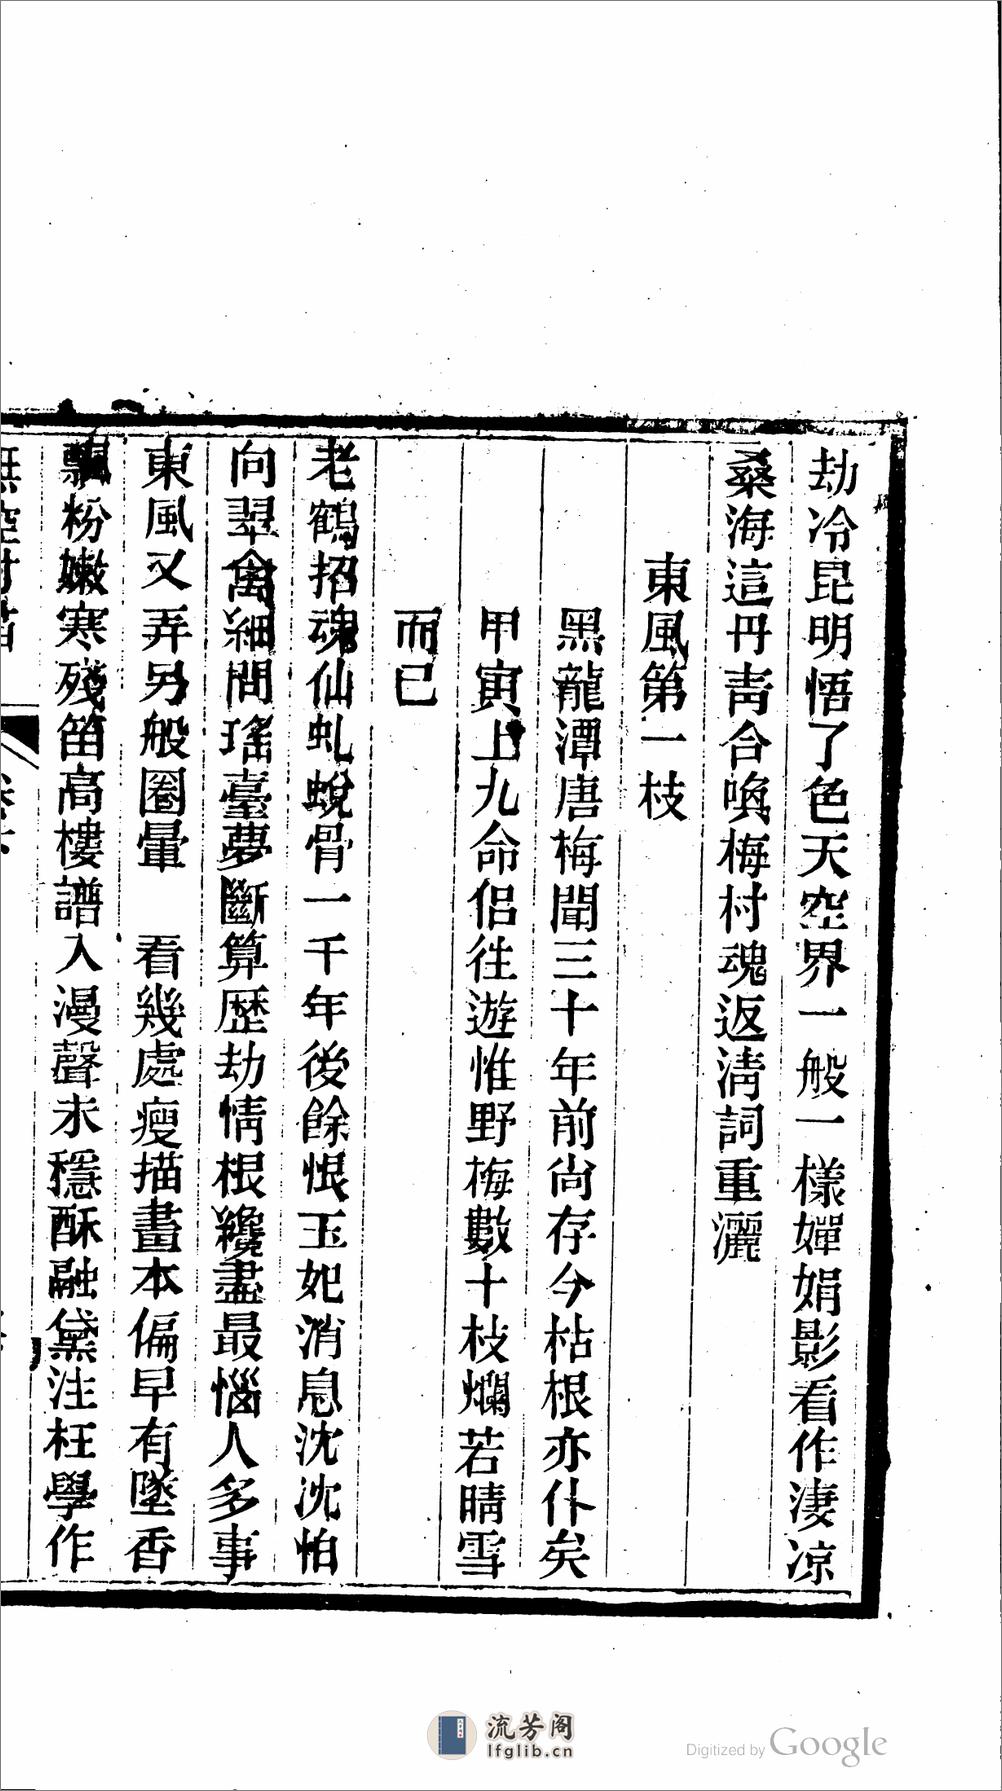 劫冷昆明悟了色天空界一般一樣嬋娟影看作淒凉
桑海這丹青合喚梅村魂返淸詞重灑
東風第一枝
黑龍潭唐梅聞三十年前尙存今枯根亦仆矣
甲寅上九命侶往遊惟野梅數十枝爛若晴雪
而已
老鶴招魂仙虬蛻骨一千年後餘恨玉妃消息沈沈怕
向翠禽細問瑤臺夢斷算歷劫情根纔盡最惱人多事
東風又弄另般圈暈　看幾處瘦描畫本偏早有墜香
飄粉嫩寒殘笛高樓譜入漫聲未穩酥融黛注枉學作
流芳阁
lfglib.cn
Digitized by Google